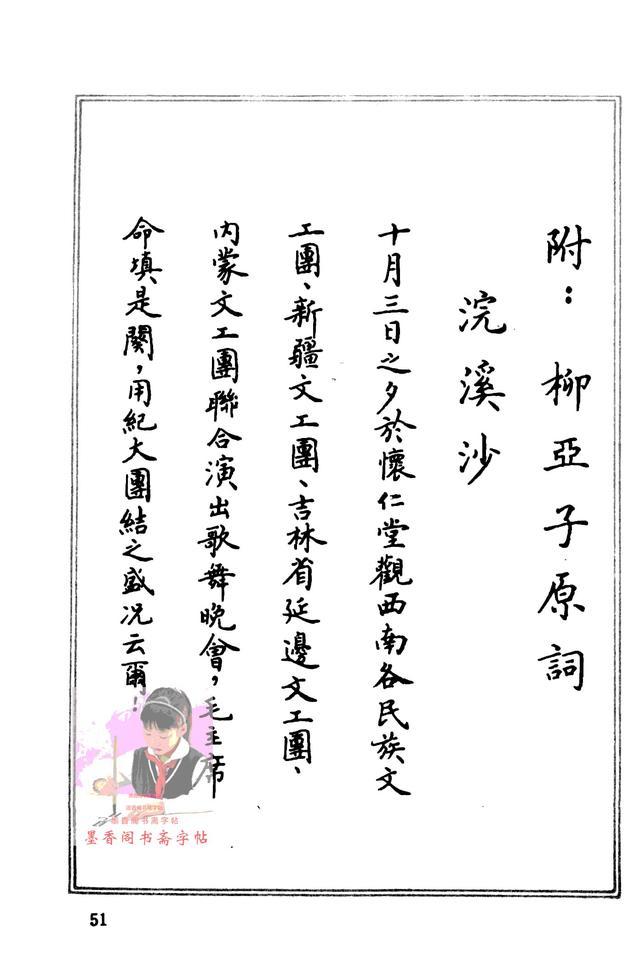 附：柳亞子原詞
浣溪沙
十月三日之夕於懷仁堂觀西南各民族文
工團、新疆文工團、吉林省延邊文工團、
內蒙文工團聯合演出歌舞晚會，毛主席
命填是闋，用紀大團結之盛況云爾！
墨香阁书斋字帖
墨香阁书斋字帖
51